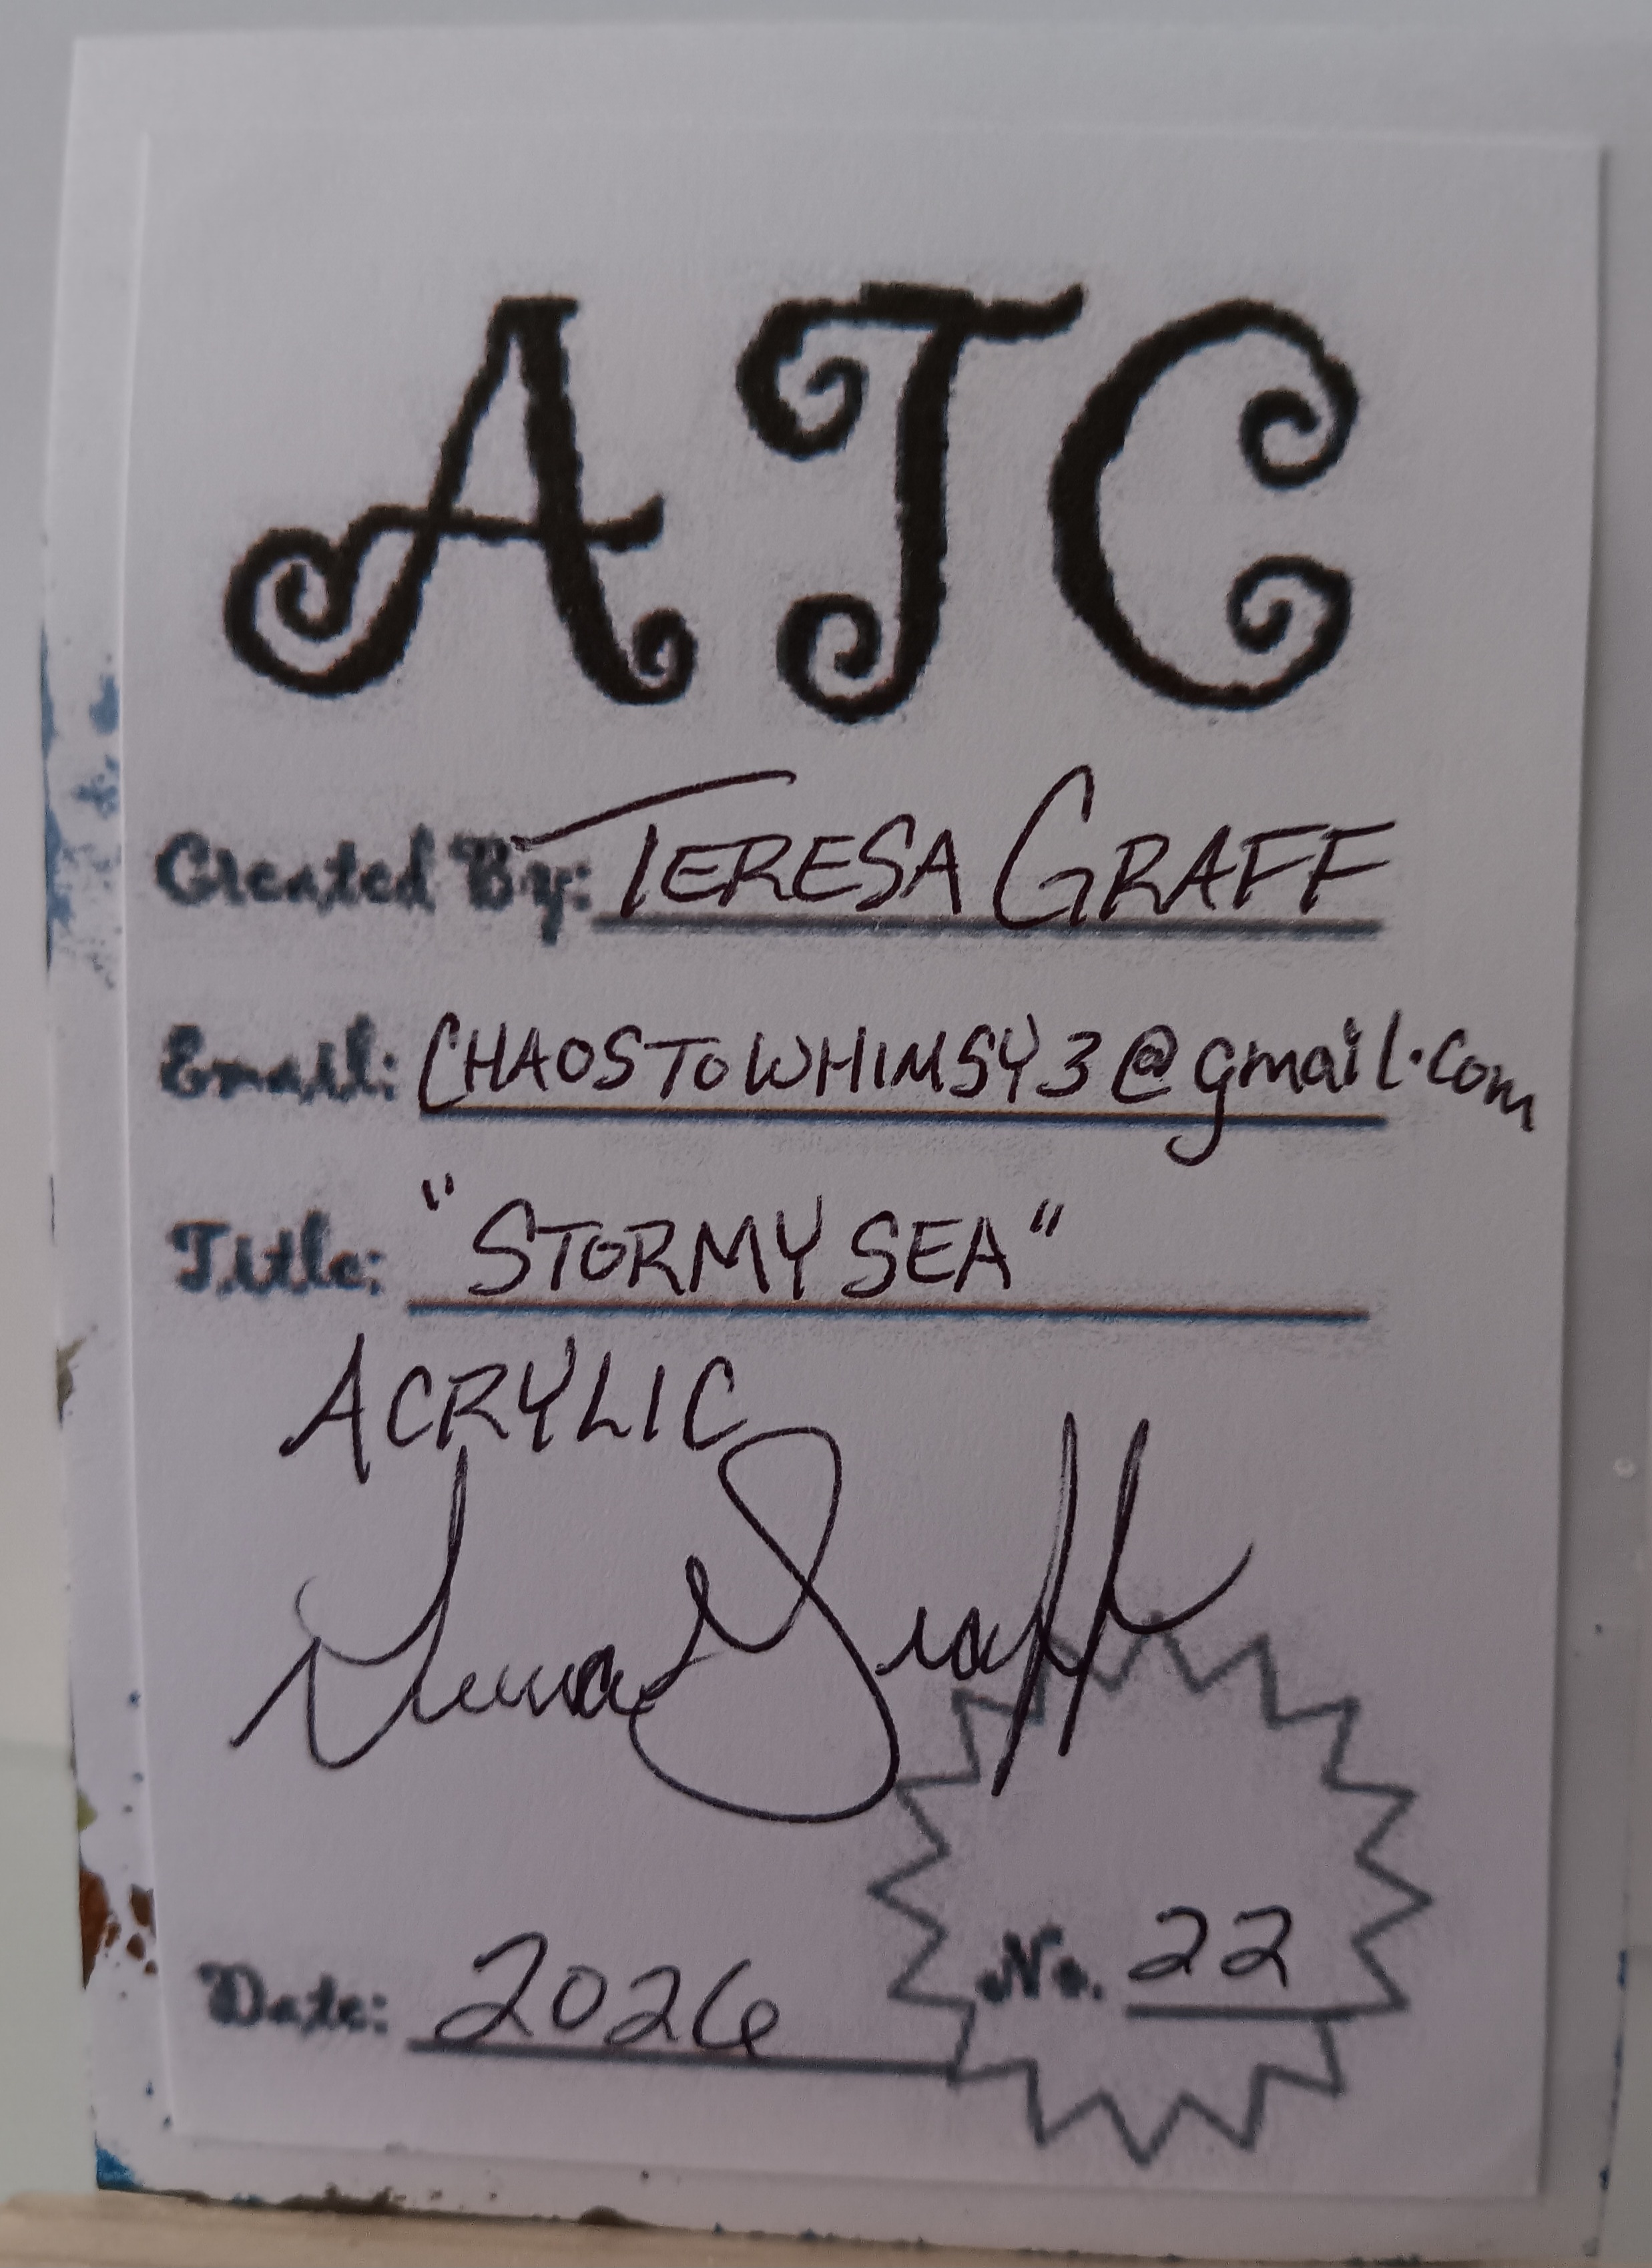 ATC
Created By: TERESA GRAFF
Email: CHAOSTOWHIMSY3@gmail.com
Title: "STORMY SEA"
ACRYLIC
Teresa Graff
No. 22
Date: 2026